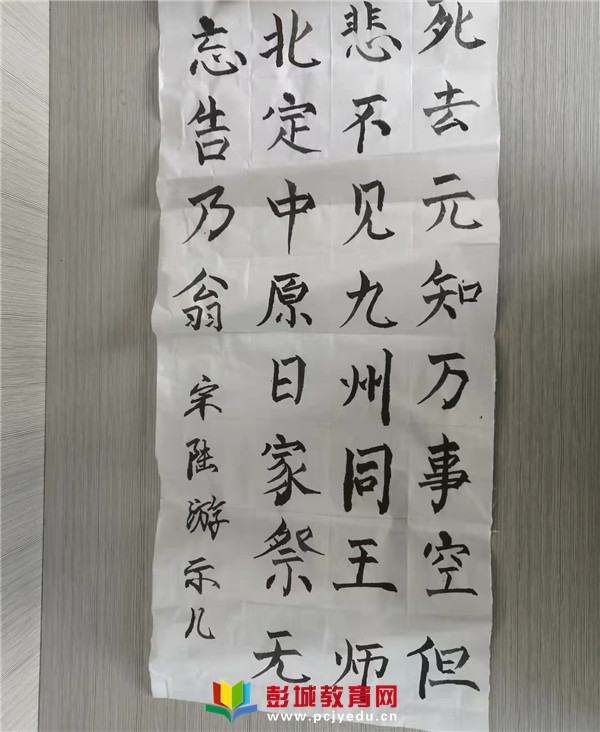 死去元知万事空但
悲不见九州同王师
北定中原日家祭无
忘告乃翁
宋陆游示儿
彭城教育网
www.pcjyedu.cn